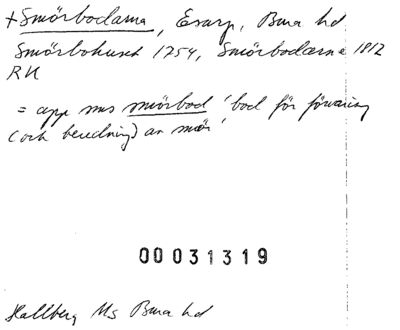 + Smörbodarna, Esarp, Bara hd
Smörbohuset 1754, Smörbodarna 1812
RH
= app sms smörbod 'bod för förvaring
(och beredning) av smör'
00031319
Hallberg Ms Bara hd